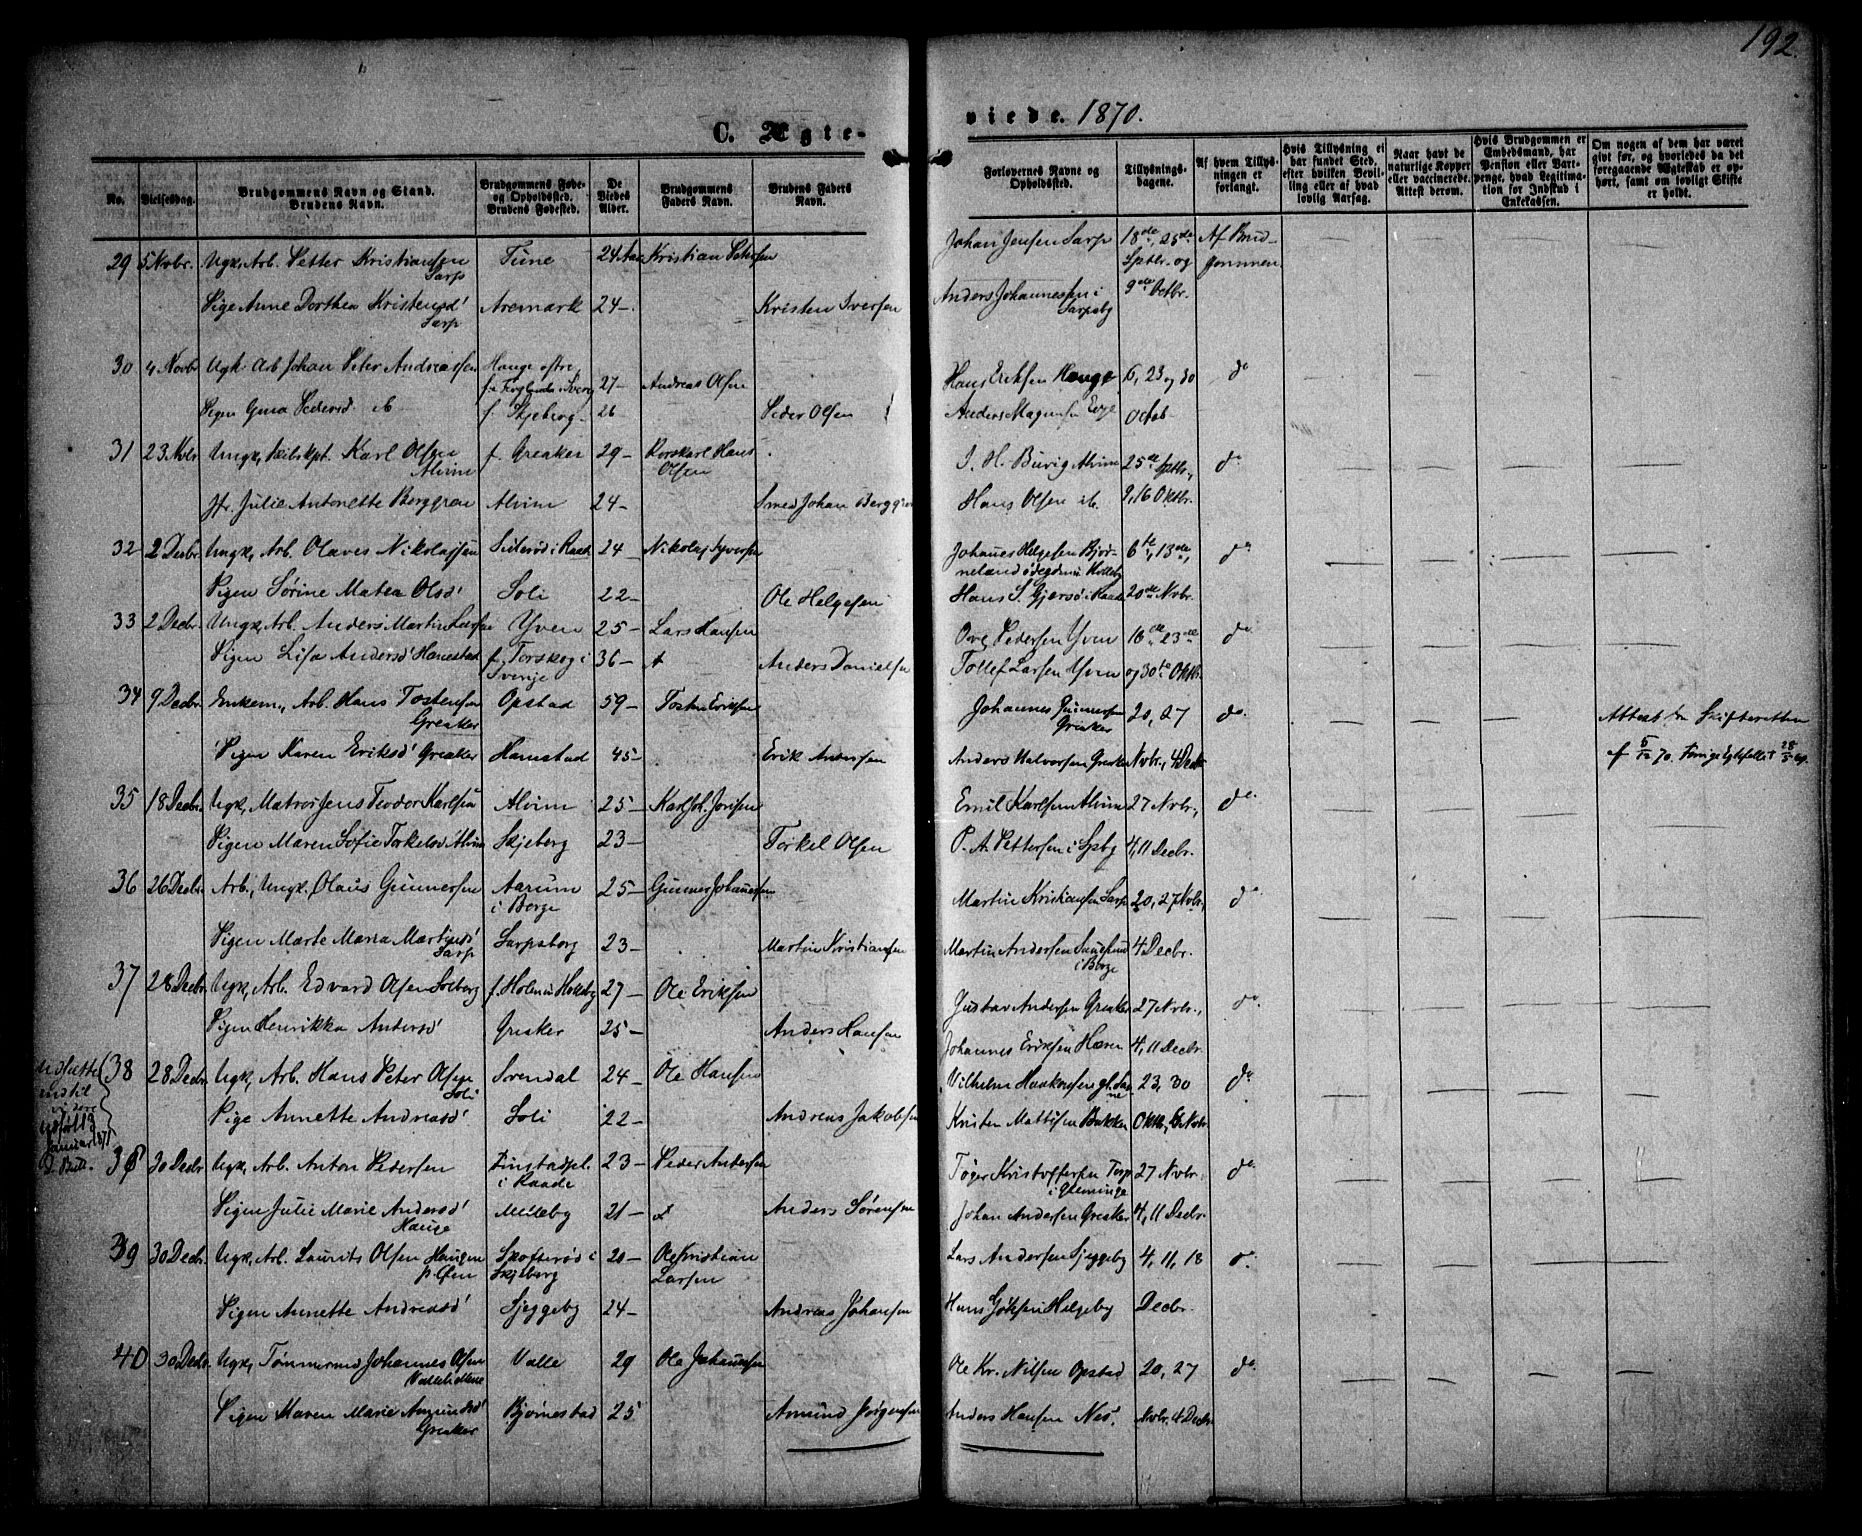 192.
C. Ægte-
viede. 1870.
No.
Vielsesdag.
Brudgommens Navn og Stand.
Brudens Navn.
Brudgommens Føde-
og Opholdssted.
Brudens Fødested.
De
Viedes
Alder.
Brudgommens
Faders Navn.
Brudens Faders
Navn.
Forlovernes Navne og
Opholdssted.
Tillysnings-
dagene.
Af hvem Tillys-
ningen er
forlangt.
Hvis Tillysning ei
har fundet Sted,
efter hvilken Bevil-
ling eller af hvad
lovlig Aarsag.
Naar havt de
naturlige Kopper
eller vaccinerede.
Attest derom.
Hvis Brudgommen er
Embedsmand, har
Pension eller Vart-
penge, hvad Legitima-
tion for Indskud i
Enkekassen.
Om nogen af dem har været
gift før, og hvorledes da det
foregaaende Ægteskab er op-
hørt, samt om lovligt Skifte
er holdt.
29 5 Novbr. Ugk, Arb. Petter Kristiansen Tune 24 Aar Kristian Petersen Johan Jensen Sarp 18de, 25de Af Brud-
Sarp Sptbr. og gommen
Pige Anne Dorthea Kristensd' Aremark 24- Kristen Iversen Anders Johannesen i 9de Octbr.
Sarp Sarpsbg
30 4 Novbr Ugk Arb Johan Peter Andreassen Hauge østre, 27- Andreas Olsen Hans Eriksen Hauge 16, 23 og 30 do
Pigen Gina Pedersd ib f. Skjeberg 26 Peder Olsen Anders Magnusen Octob
31 23 Nvbr Ungk, Karl Olsen f. Greaker 29- Hans J. H. Buvig Alvim 25de Sptbr., do
Alvim Olsen
Jfr. Julie Antonette Berggren Alvim 24- Smed Johan Berggren Hans Olsen ib. 9, 16 Oktbr.
32 2 Decbr Ungk, Arb. Olaves Nikolajsen i Raade 24- Nikolaj Syversen Johannes Helgesen Bjør- 6te, 13de, do
neland
Pigen Sørine Matea Olsd' Soli 22- Ole Helgesen Hans S. Gjersø i Raade 20de Nvbr.
33 2 Decbr. Ungk, Arb. Anders Martin Larsen Yven 25- Lars Hansen Ove Pedersen Yven 16de 23de do
Pigen Lisa Andersd' Hanestad f. Torskog i 36- Anders Danielsen Tollef Larsen Yven og 30te Oktbr.
Sverige
34 9 Decbr. Enkem., Arb. Hans Tostensen Opstad 59- Tosten Eriksen Johannes Gunnersen 20, 27 do. Attest fra Skifteretten
Greaker Greaker
Pigen Karen Eriksd' Greaker Hanestad 45- Erik Andersen Anders Halvorsen Greaker Nvbr., 4 Decbr af 5/12 70.
35 18 Decbr. Ugk, Matros Jens Teodor Karlsen Alvim 25- Karl Joh. Jonsen Emil Karlsen Alvim 27 Nvbr., do.
Pigen Maren Sofie Torkelsd Alvim Skjeberg 23- Torkel Olsen P. A. Pettersen i Spsbg 4, 11 Decbr.
36 26 Decbr. Arb., Ungk. Olaus Gunnersen Aarum 25- Gunner Johannesen Martin Kristiansen Sarp 20, 27 Nvbr., do
i Borge
Pigen Marte Maria Martinsd' Sarpsborg 23- Martin Kristiansen Martin Andersen Sandsund 4 Decbr.
Sarp i Borge
37 28 Decbr. Ugk, Arb. Edvard Olsen Solberg f. Holm i 27- Ole Eriksen Gustav Andersen Greaker 27 Nvbr., do.
Pigen Henrikka Andersd' Greaker 25- Anders Hansen Johannes Eriksen Haren 4, 11 Decbr.
38 28 Decbr. Ugk, Arb. Hans Peter Olsen Sorendal 24- Ole Hansen Vilhelm Haakonsen 23, 30 do
Soli
Pige Annette Andreasd' Soli 22- Andreas Jakobsen Kristen Mattisen Bakken Oktbr., 6 Nvbr.
Januar 1871
38 30 Decbr Ugk, Arb. Anton Pedersen 23- Peder Andersen Tøger Kristoffersen Torp 27 Nvbr. do.
i Raade i Glemmige
Pigen Julie Marie Andersd' Milleby 21- Anders Sørensen Johan Andersen Greaker 4, 11 Decbr.
Hauge
39 30 Decbr. Ugk, Arb. Laurits Olsen Haugen Spofterød i 20- Ole Kristian Lars Andersen Sjeggeby 4, 11, 18 do.
Skjeberg Larsen
Pigen Annette Andreasd' Sjeggeby 24- Andreas Johansen Hans Helgeby Decbr.
40 30 Decbr. Ugk, Tømmermd Johannes Olsen Valle 29 Ole Johannesen Ole Kr. Nilsen Opstad 20, 27 do.
Valleholtene
Pigen Maren Marie Amundsd' Bjørnestad 25 Amund Jørgensen Anders Hansen Nes. Nvbr. 4 Decbr.
Greaker